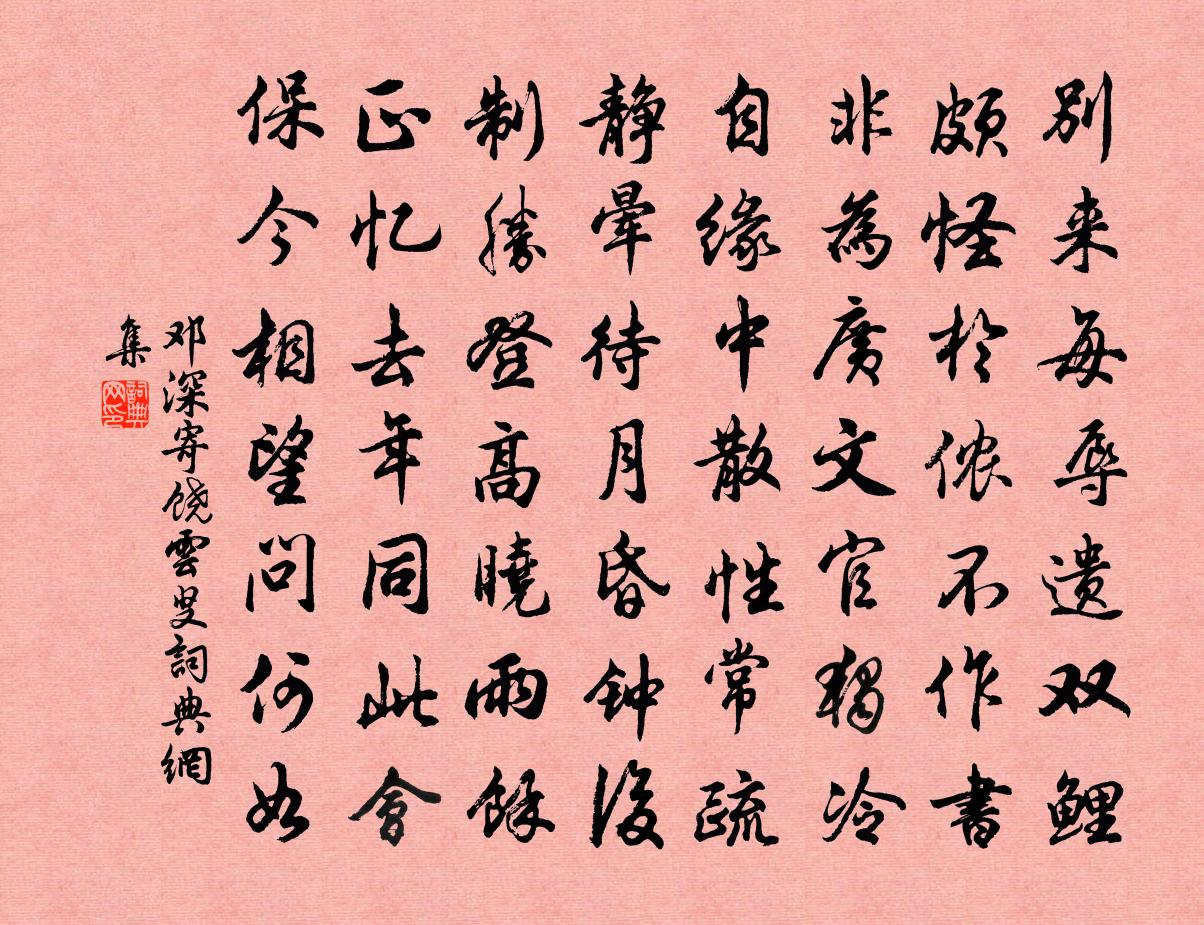 别来每辱遗双鲤
颇怪於侬不作书
非为广文官独冷
自缘中散性常疏
静晕待月昏钟后
制胜登高晓雨馀
正忆去年同此会
保今相望问何如
邓深寄饶云叟词典网
集
词典网印